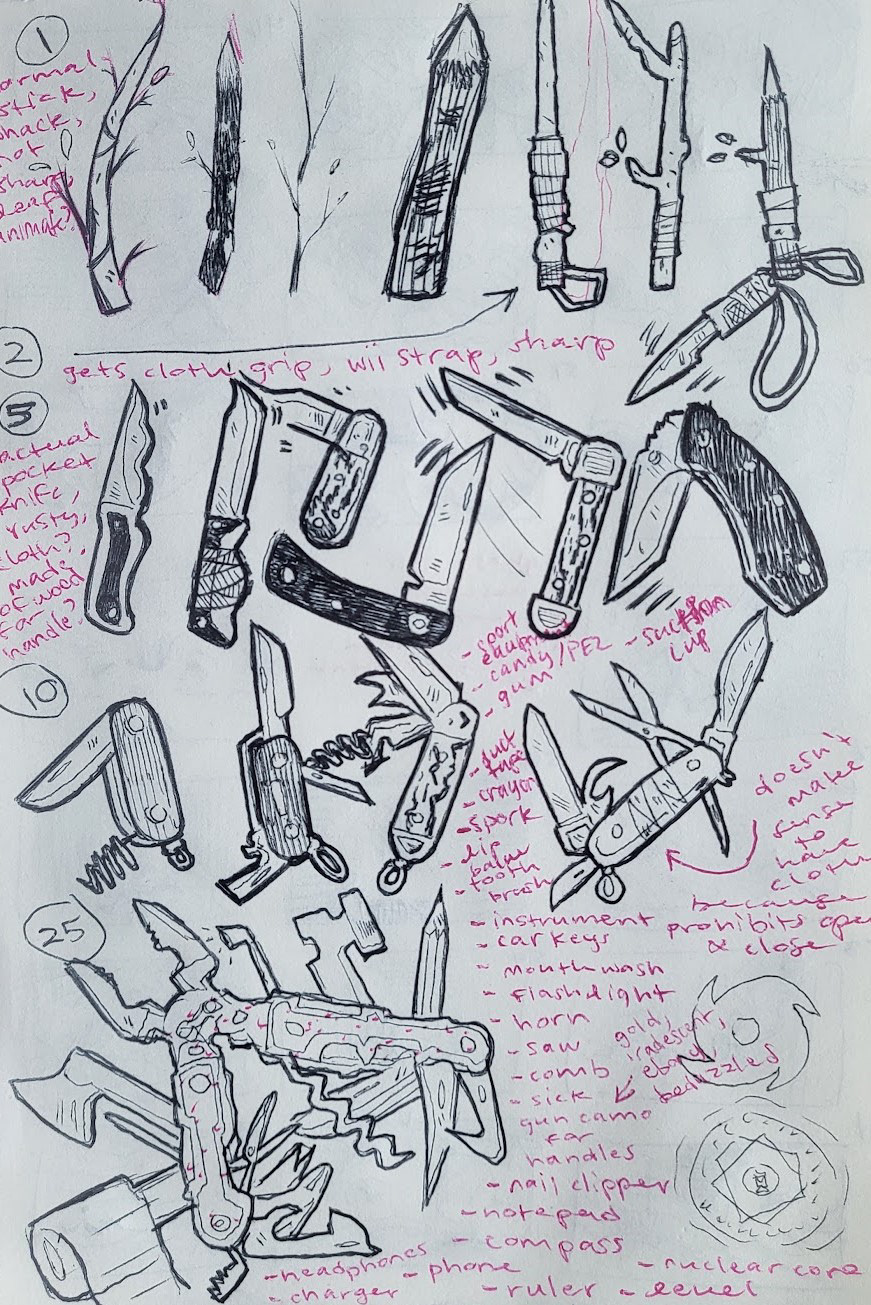 1
normal
stick,
whack,
not
sharp
leaf
animate?
2
gets cloth grip, wii strap, sharp
5
actual
pocket
knife,
rusty,
cloth?
made
of wood
for
handle?
10
- sport
equipment
- candy/PEZ
- gum
- suction
cup
- duct
tape
- crayon
- spork
- lip
balm
- tooth
brush
- instrument
- car keys
- mouthwash
- flashlight
- horn
- saw
- comb
- sick
gun camo
for
handles
- nail clipper
- notepad
- compass
doesn't
make
sense
to
have
cloth
because
prohibits open
& close
25
gold,
iradescent,
ebony
bedazzled
- headphones
- phone
- nuclear core
- charger
- ruler
- level